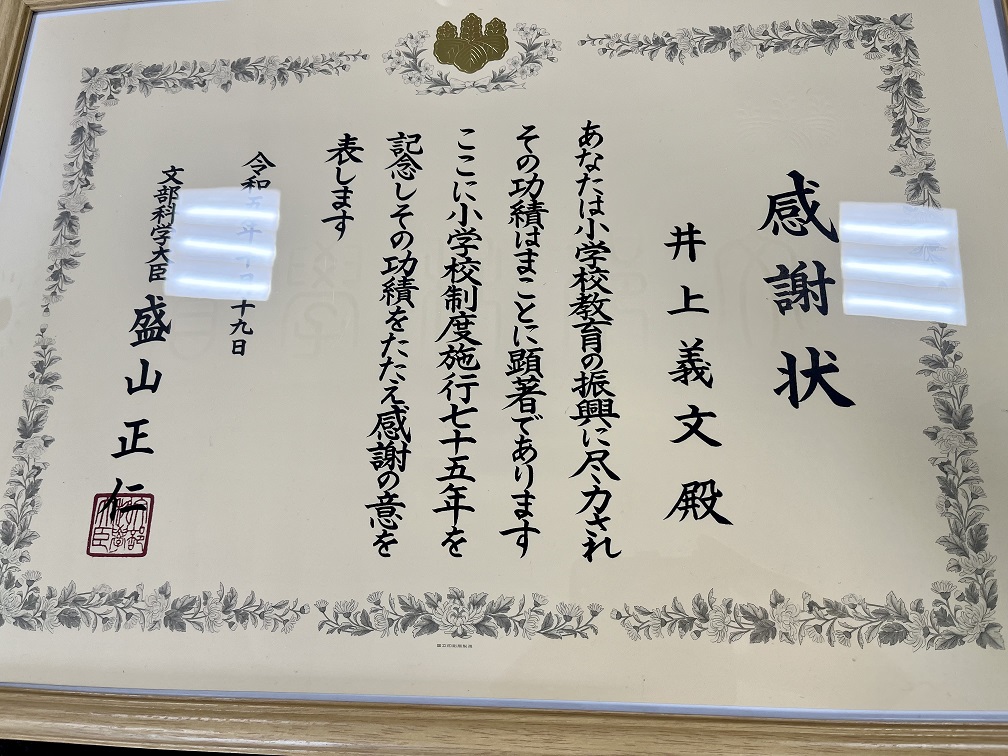 感謝状
井上義文殿
あなたは小学校教育の振興に尽力され
その功績はまことに顕著であります
ここに小学校制度施行七十五年を
記念しその功績をたたえ感謝の意を
表します
令和五年 十九日
文部科学大臣 盛山正仁